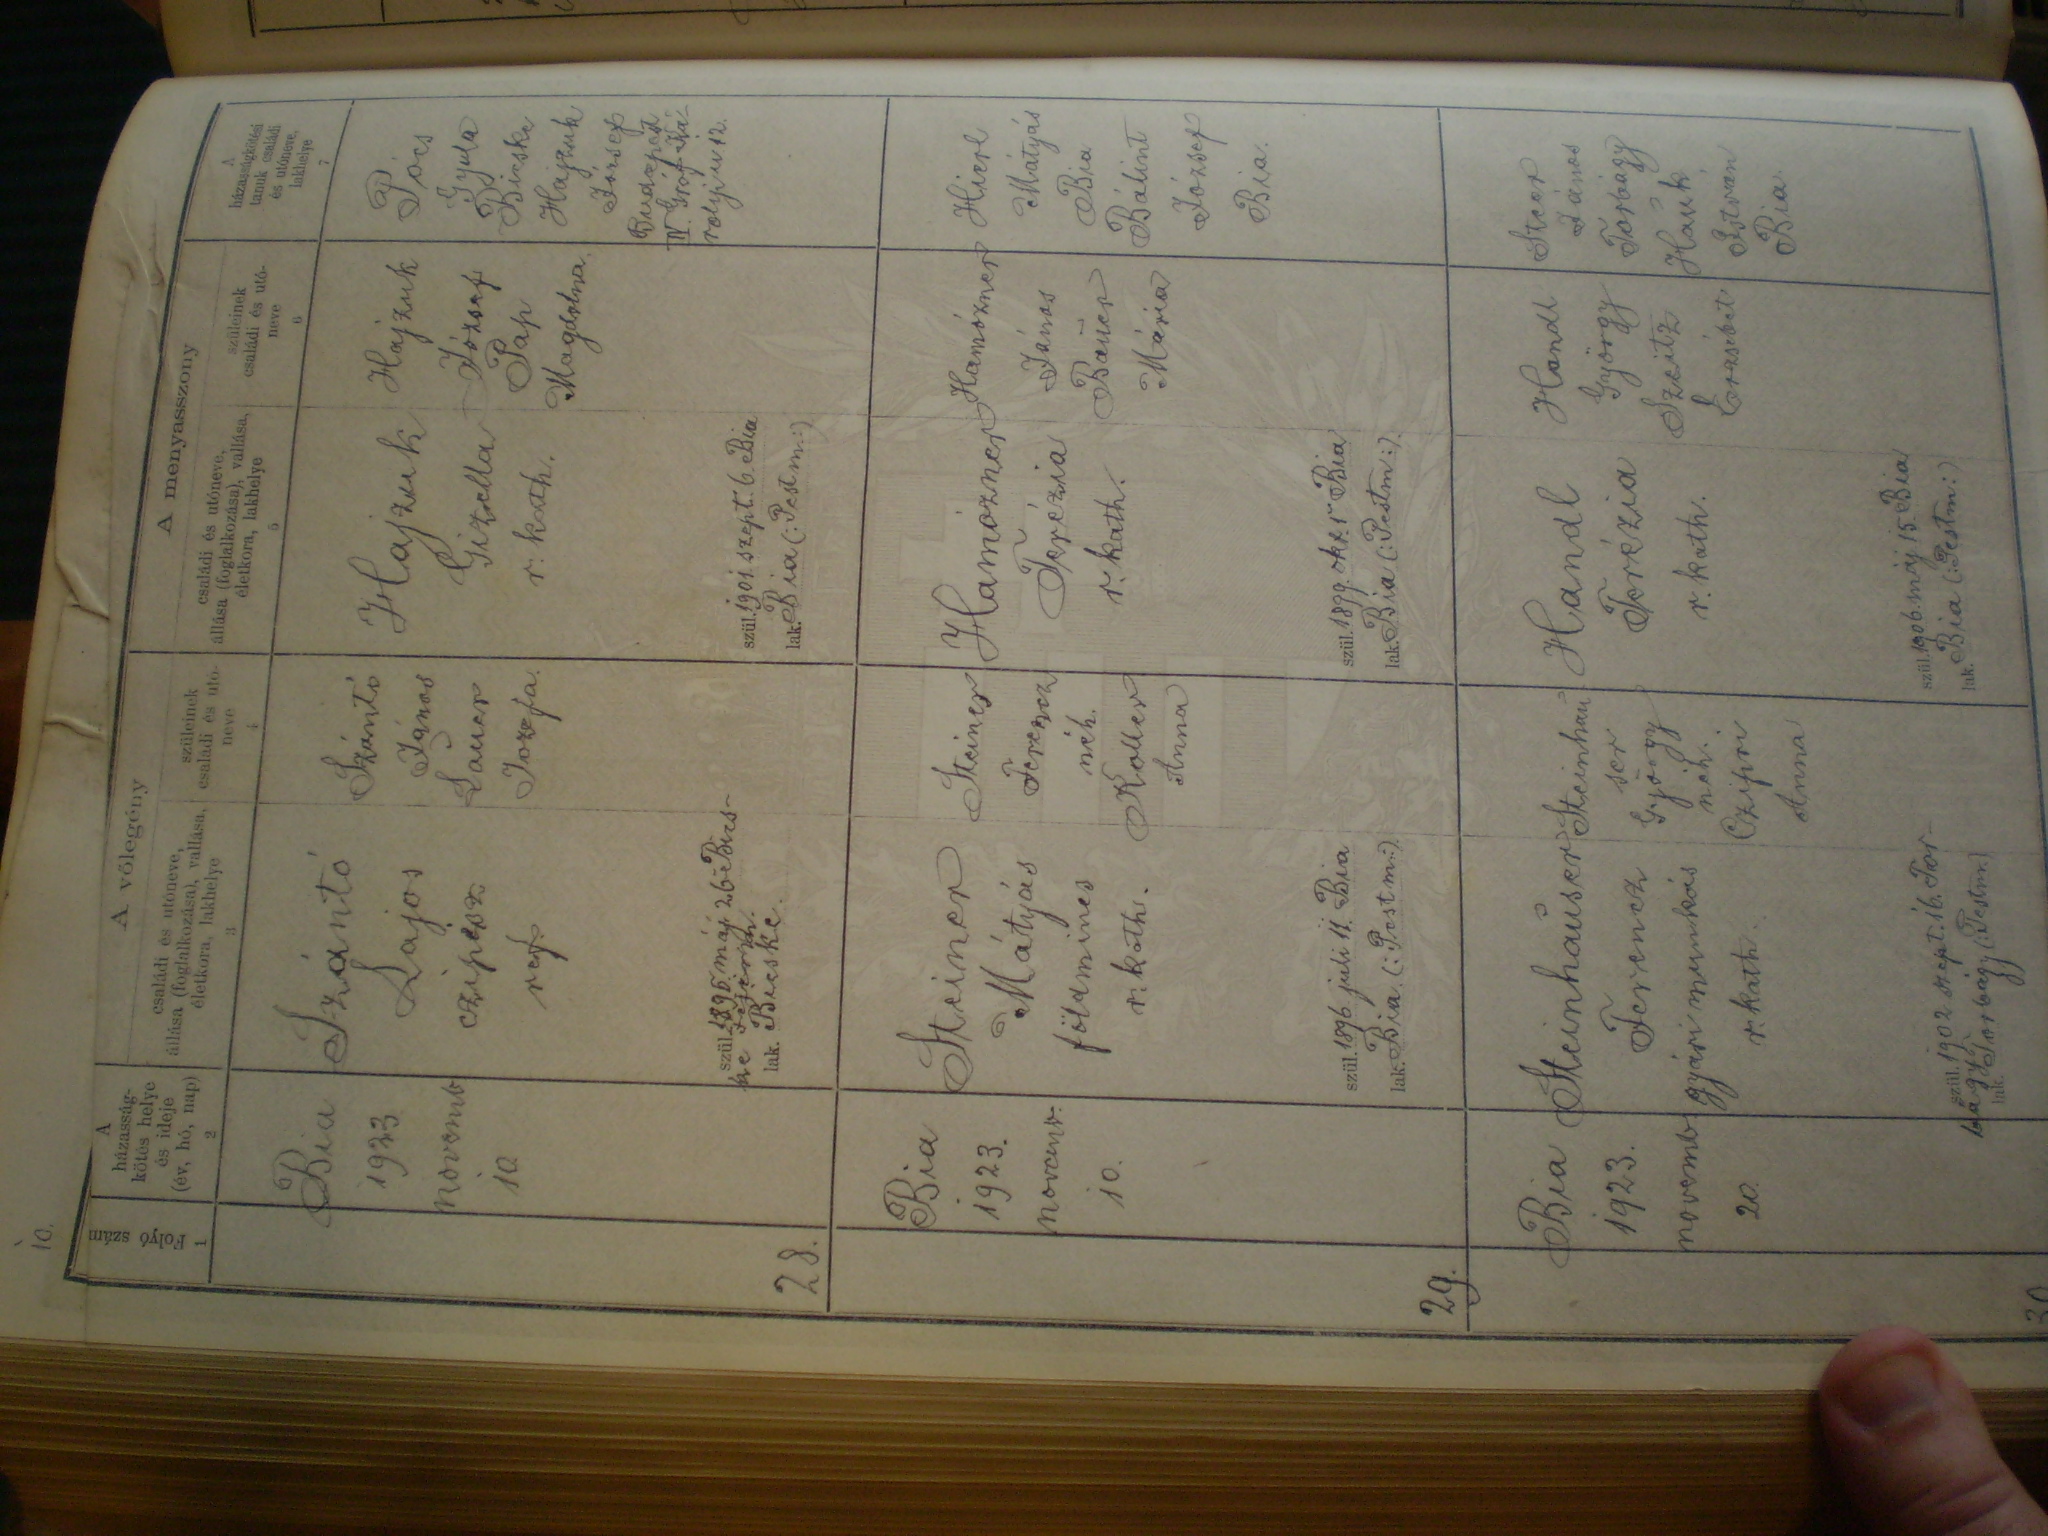 10.
Folyó szám
1
A házasság-
kötés helye
és ideje
(év, hó, nap)
2
A vőlegény
családi és utóneve,
állása (foglalkozása), vallása,
életkora, lakhelye
3
szüleinek
családi és utó-
neve
4
A menyasszony
családi és utóneve,
állása (foglalkozása), vallása,
életkora, lakhelye
5
szüleinek
családi és utó-
neve
6
A
házasságkötési
tanuk családi
és utóneve,
lakhelye
7
28.
Bia
1923
novemb
10
Szántó
Lajos
czipész
ref.
szül. máj. 26 Bics-
ke Fejérm.
lak. Bicske.
Szántó
János
Lauer
Jozefa.
Hajzuk
Gizella
r. kath.
szül. 1901 szept. 6. Bia
lak. Bia (: Pestm :)
Hajzuk
József
Pap
Magdolna.
Pócs
Gyula
Bicske
Hajzuk
József
Budapest
IV. Gróf Ká-
rolyi u 12.
29.
Bia
1923.
novemb.
10.
Steiner
Mátyás
földmives
r. kath.
szül. 1896 juli 11. Bia
lak. Bia. (: Pestm :)
Steiner
Ferencz
néh.
Koller
Anna
Hamózner
Terézia
r. kath.
szül. 1899. okt. 1 Bia
lak. Bia (: Pestm :)
Hamózner
János
Bauer
Mária
Hierl
Mátyás
Bia
Bálint
József
Bia.
30
Bia
1923.
novemb
20.
Steinhauser
Ferencz
gyári munkás
r. kath.
szül. 1902 szept. 16. Tor-
bágy
lak. Torbágy (: Pestm :)
Steinhau
ser
György
néh.
Czipri
Anna
Handl
Terézia
r. kath.
szül. 1906 máj 15 Bia
lak. Bia (: Pestm :)
Handl
György
Szeitz
Erzsébet
János
Torbágy
Hauk
István
Bia.